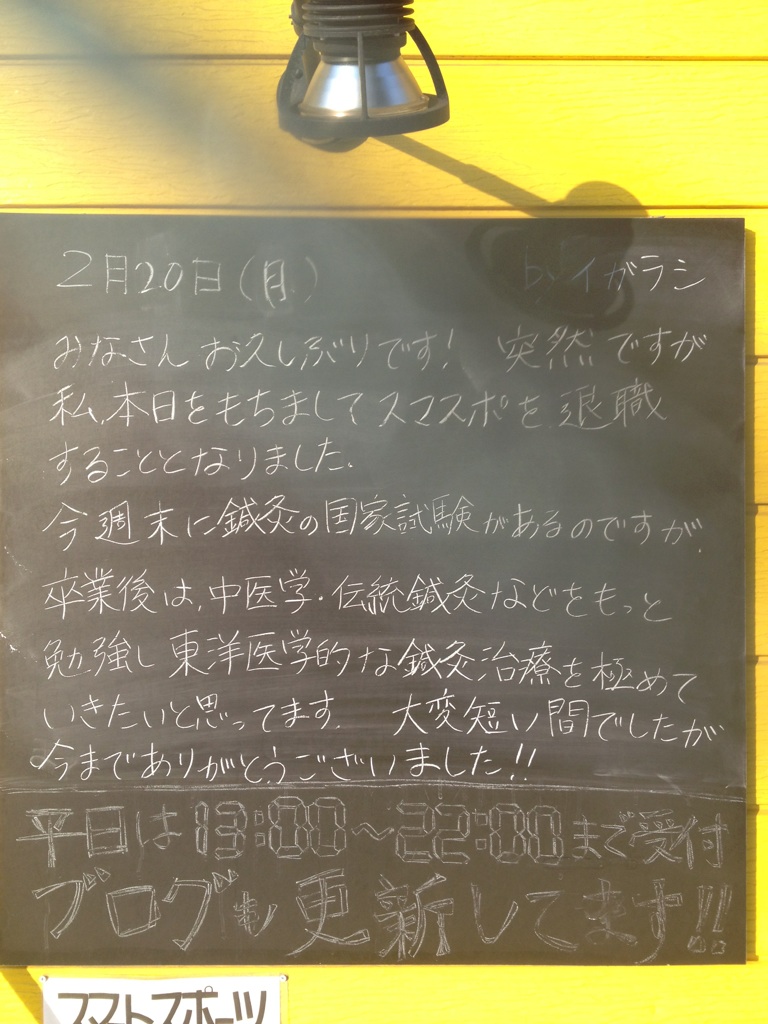 2月20日(月) by イガラシ
みなさん お久しぶりです! 突然ですが
私、本日をもちましてスマスポを退職
することとなりました、
今週末に鍼灸の国家試験があるのですが、
卒業後は、中医学・伝統鍼灸などをもっと
勉強し東洋医学的な鍼灸治療を極めて
いきたいと思ってます. 大変短い間でしたが
今までありがとうございました!!
平日は13:00~22:00まで受付
ブログも更新してます!!
スマートスポーツ